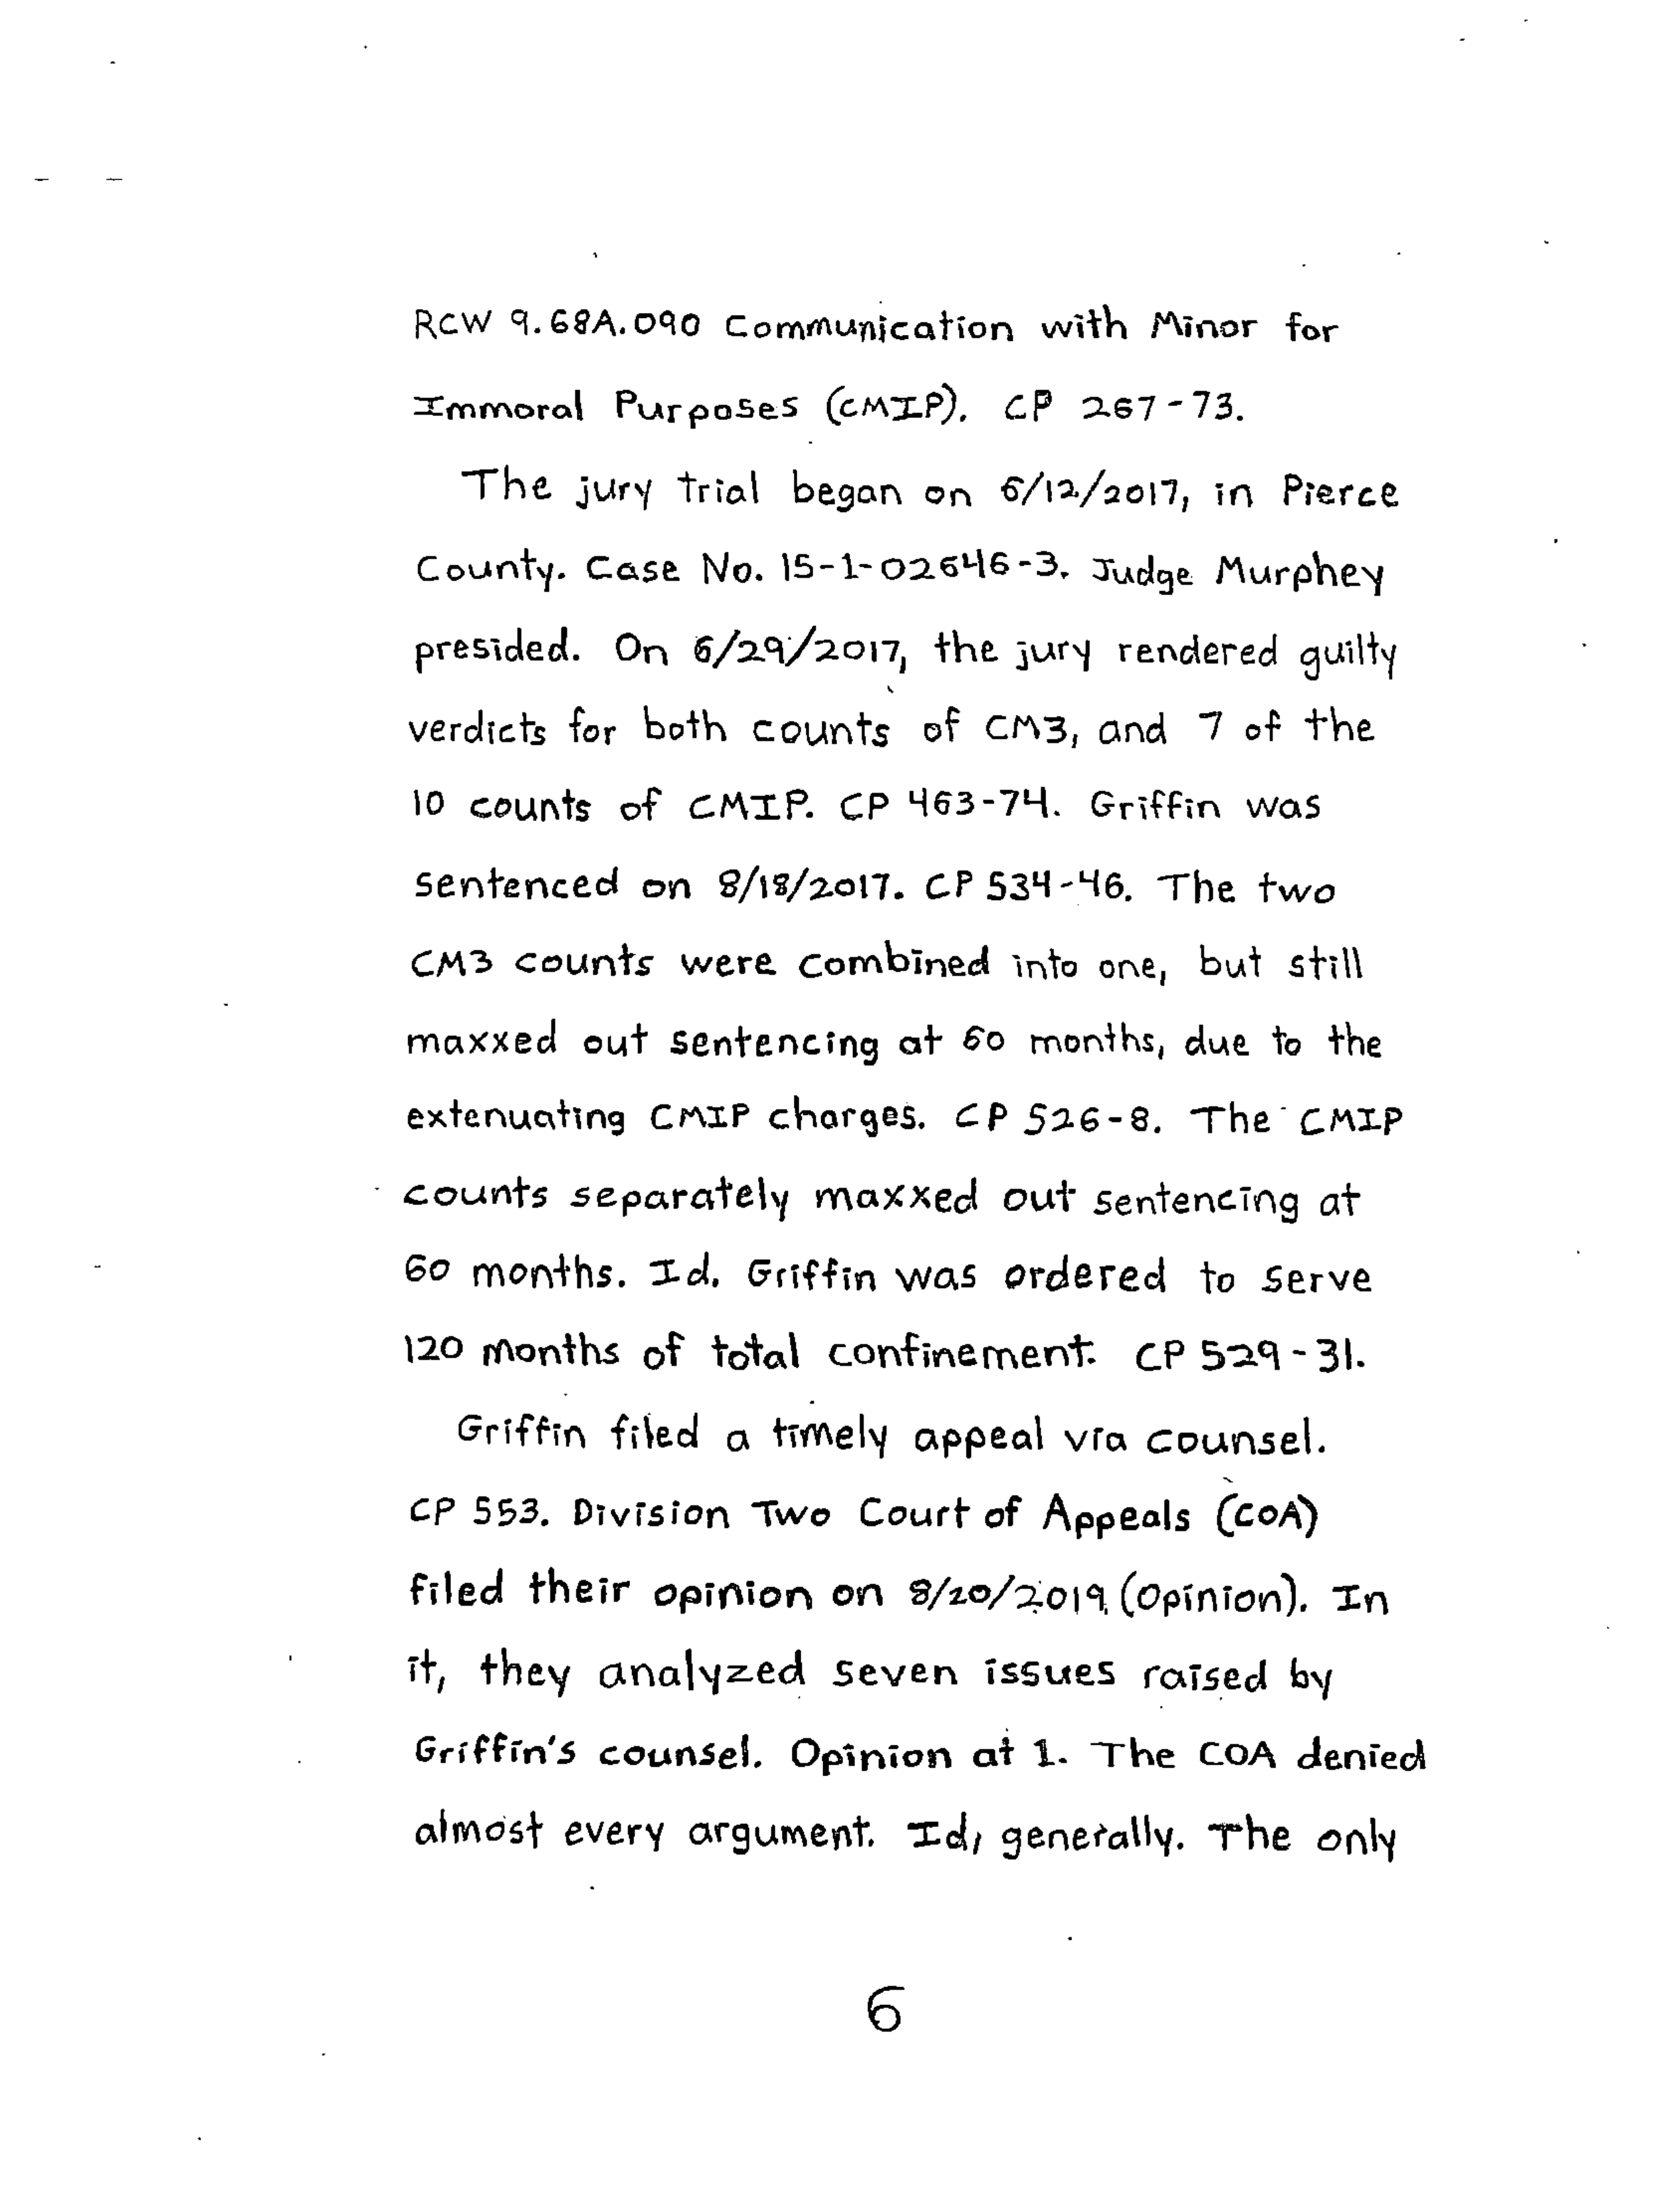 RCW 9.68A.090 Communication with Minor for
Immoral Purposes (CMIP). CP 267-73.
The jury trial began on 6/12/2017, in Pierce
County. Case No. 15-1-02646-3. Judge Murphey
presided. On 6/29/2017, the jury rendered guilty
verdicts for both counts of CM3, and 7 of the
10 counts of CMIP. CP 463-74. Griffin was
sentenced on 8/18/2017. CP 534-46. The two
CM3 counts were combined into one, but still
maxxed out sentencing at 60 months, due to the
extenuating CMIP charges. CP 526-8. The CMIP
counts separately maxxed out sentencing at
60 months. Id. Griffin was ordered to serve
120 months of total confinement. CP 529-31.
Griffin filed a timely appeal via counsel.
CP 553. Division Two Court of Appeals (COA)
filed their opinion on 8/20/2019 (Opinion). In
it, they analyzed seven issues raised by
Griffin's counsel. Opinion at 1. The COA denied
almost every argument. Id, generally. The only
6